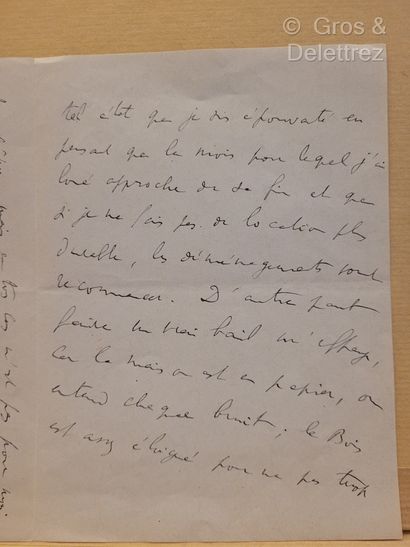 © Gros &
Delettrez
tel état que je suis épouvanté en
pensant que le mois pour lequel j'ai
loué approche de sa fin et que
si je ne fais pas de location plus
durable, les déménagements vont
recommencer. D'autre part
faire un vrai bail m'effraye,
car la maison est en papier, on
entend chaque bruit ; le Bois
est assez éloigné pour ne pas trop